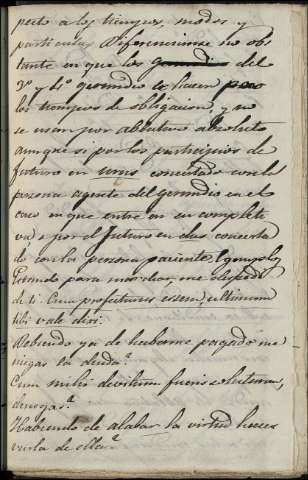 pecto a los tiempos, modos y
particulas. Diferencianse no obs
tante en que los gerundios del
3º y 4º gerundio lo hacen por
los tiempos de obligacion, y no
se usan por ablativo absoluto
aunque si por los participios de
futuro en concertado con la
persona agente del gerundio en el
caso en que entre en su comple
va o por el futuro en dus concerta
do con la persona paciente. Egemplos
para marchar, me despedi
de ti. Cum profecturus essem, ultimum
tibi vale dixi.
Habiendo ya de haberme pagado me
niegas la deuda?
Cum mihi debitum fueris soluturus,
denegas?
Habiendo de alabar la virtud huces
burla de ella?